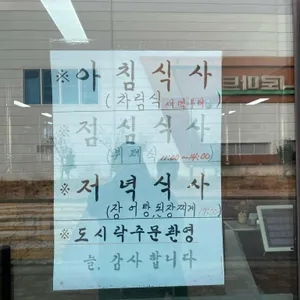 ※ 아침식사
(차림식 새벽부터)
※ 점심식사
(뷔페식 11:00~14:00)
※ 저녁식사
(장어탕, 된장찌개)
※ 도시락주문환영
늘, 감사합니다